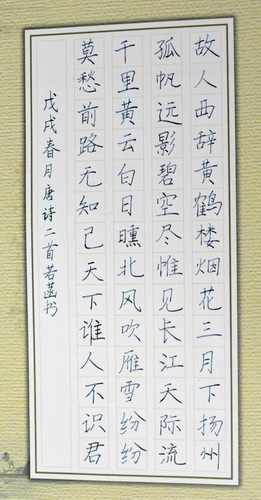 故人西辞黄鹤楼烟花三月下扬州
孤帆远影碧空尽惟见长江天际流
千里黄云白日曛北风吹雁雪纷纷
莫愁前路无知己天下谁人不识君
戊戌春月唐诗二首若菡书